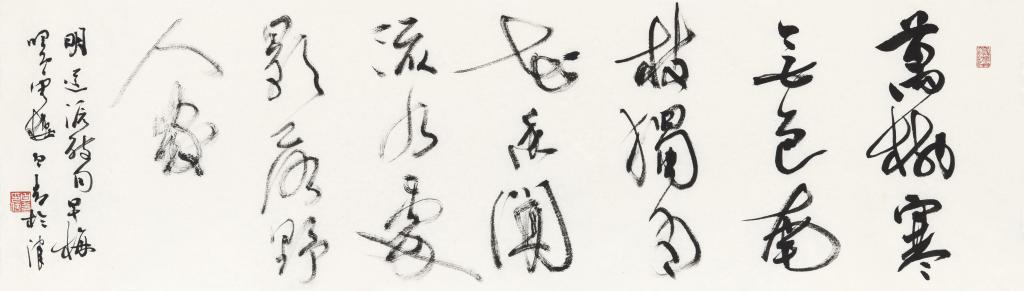 萬樹寒
無色南
枝獨有
花香聞
流水處
影落野
人家
明道源詩句早梅
書於